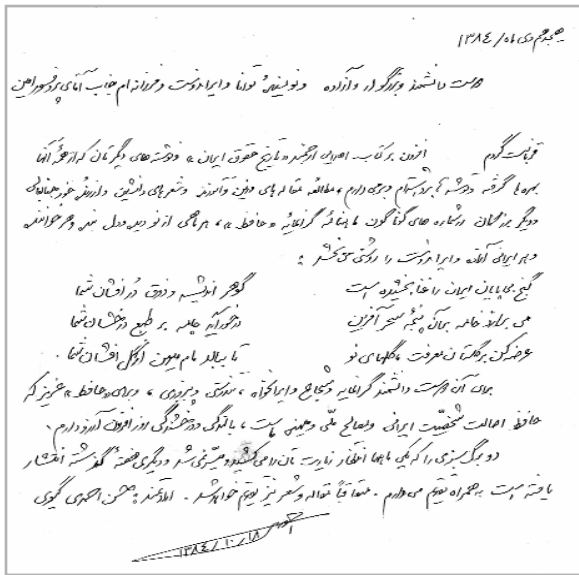 هجدهم دی ماه/ ۱۳۸٤
دوست دانشمند و بزرگوار و آزاده و نویسندهٔ توانا و ایراندوست و فرزانه ام جناب آقای پروفسور امین
قربانت گردم افزون بر کتاب اهدایی ارجمند «تاریخ حقوق ایران» و نوشته های دیگرتان که از همهٔ آنها
بهره ها گرفته و توشه ها برداشته ام و برمی دارم، مطالعهٔ مقاله های وزین و آموزنده و شعرهای دلنشین و ارزندهٔ خود جنابعالی
و دیگر بزرگان در شماره های گوناگون ماهنامهٔ گرانمایهٔ «حافظ»، هر ماهی از نو دیده و دل بنده و هر خوانندهٔ
و هر ایرانی آزاده و ایراندوست را روشنی می بخشد:
گنج بی پایان ایران را غنا بخشیده است گوهر اندیشه و ذوق دُرافشان شما
می برازد خامه بر آن پنجهٔ سحرآفرین درخور آید چامه بر طبع درخشان شما
عرضه کن بر گلستان معرفت، گلهای نو تا ببالد نام میهن از گل افشان شما.
برای آن دوست دانشمند گرانمایه و شجاع و ایرانخواه، تندرستی و پیروزی، و برای «حافظ» عزیز که
حافظ اصالت شخصیّت ایرانی و مصالح ملّی و میهنی ماست، بالندگی و درخشندگی روزافزون آرزو دارم.
دو برگ سبزی را که یکی ماهها انتظار زیارت تان را می کشید و میسّر نمی شد و دیگری هفتهٔ گذشته انتشار
یافته است به همراه تقدیم می دارم. متعاقباً مقاله و شعر نیز تقدیم خواهد شد. ارادتمند: حسن احمدی گیوی
۱۳۸٤/۱۰/۱۸